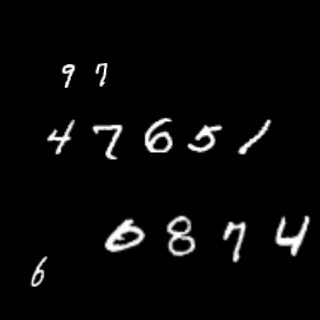 97
47651
6874
6